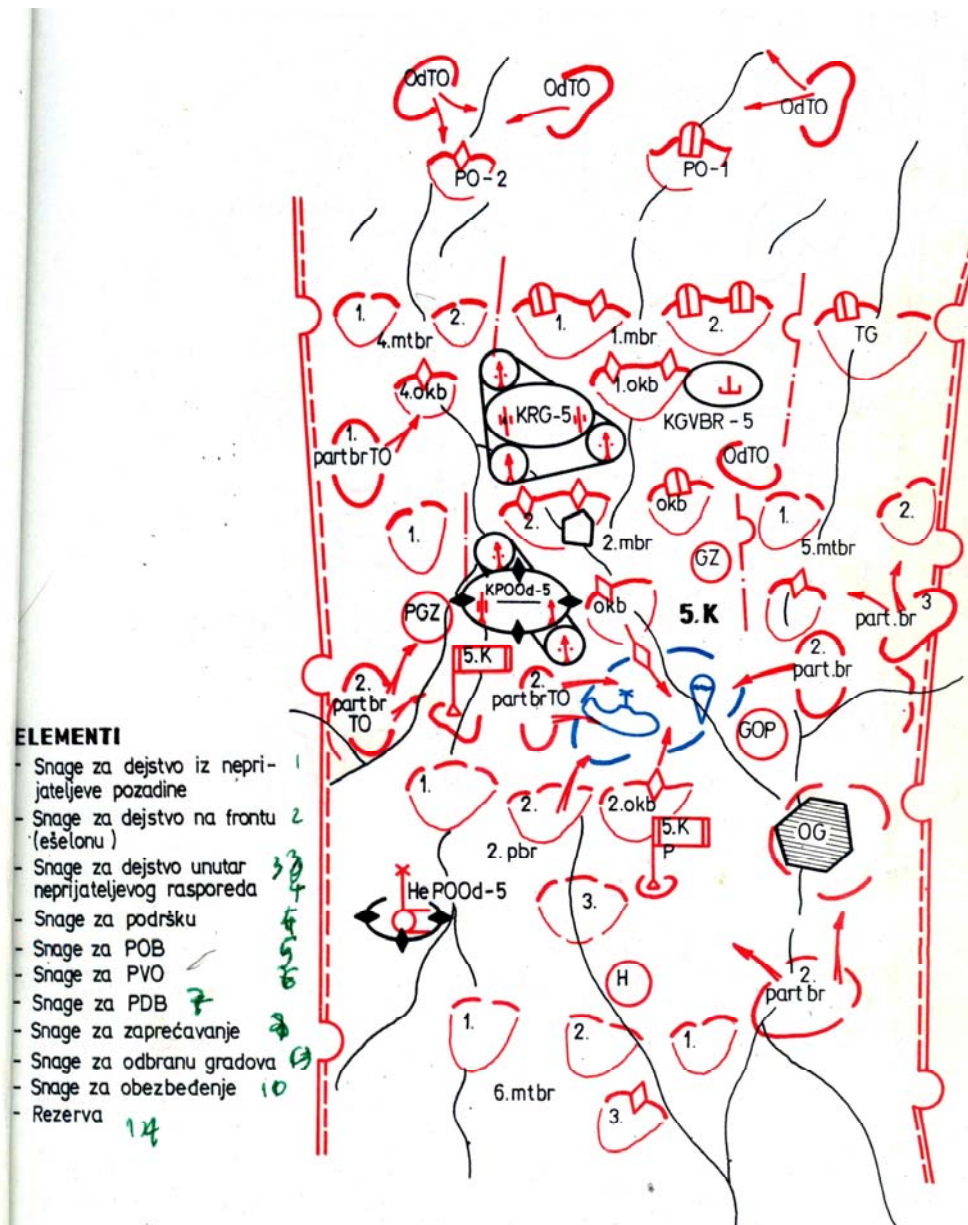 OdTO
OdTO
OdTO
PO-2
PO-1
1.
2.
4.mtbr
1.
1.mbr
2.
TG
4.okb
KRG-5
1.okb
KGVBR-5
1.
part br TO
OdTO
1.
2.
okb
2.mbr
1.
2.
5.mtbr
GZ
PGZ
KPOOd-5
okb
5.K
3
part.br
5.K
2.
part br
TO
2.
part br TO
2.
part.br
GOP
1.
2.
2.okb
2.pbr
5.K
P
OG
3.
He POOd-5
H
2.
part br
1.
2.
1.
6.mtbr
3.
ELEMENTI
- Snage za dejstvo iz nepri- 1
jateljeve pozadine
- Snage za dejstvo na frontu 2
(ešelonu)
- Snage za dejstvo unutar
neprijateljevog rasporeda
- Snage za podršku
- Snage za POB
- Snage za PVO
- Snage za PDB
- Snage za zaprečavanje
- Snage za odbranu gradova
- Snage za obezbeđenje 10
- Rezerva